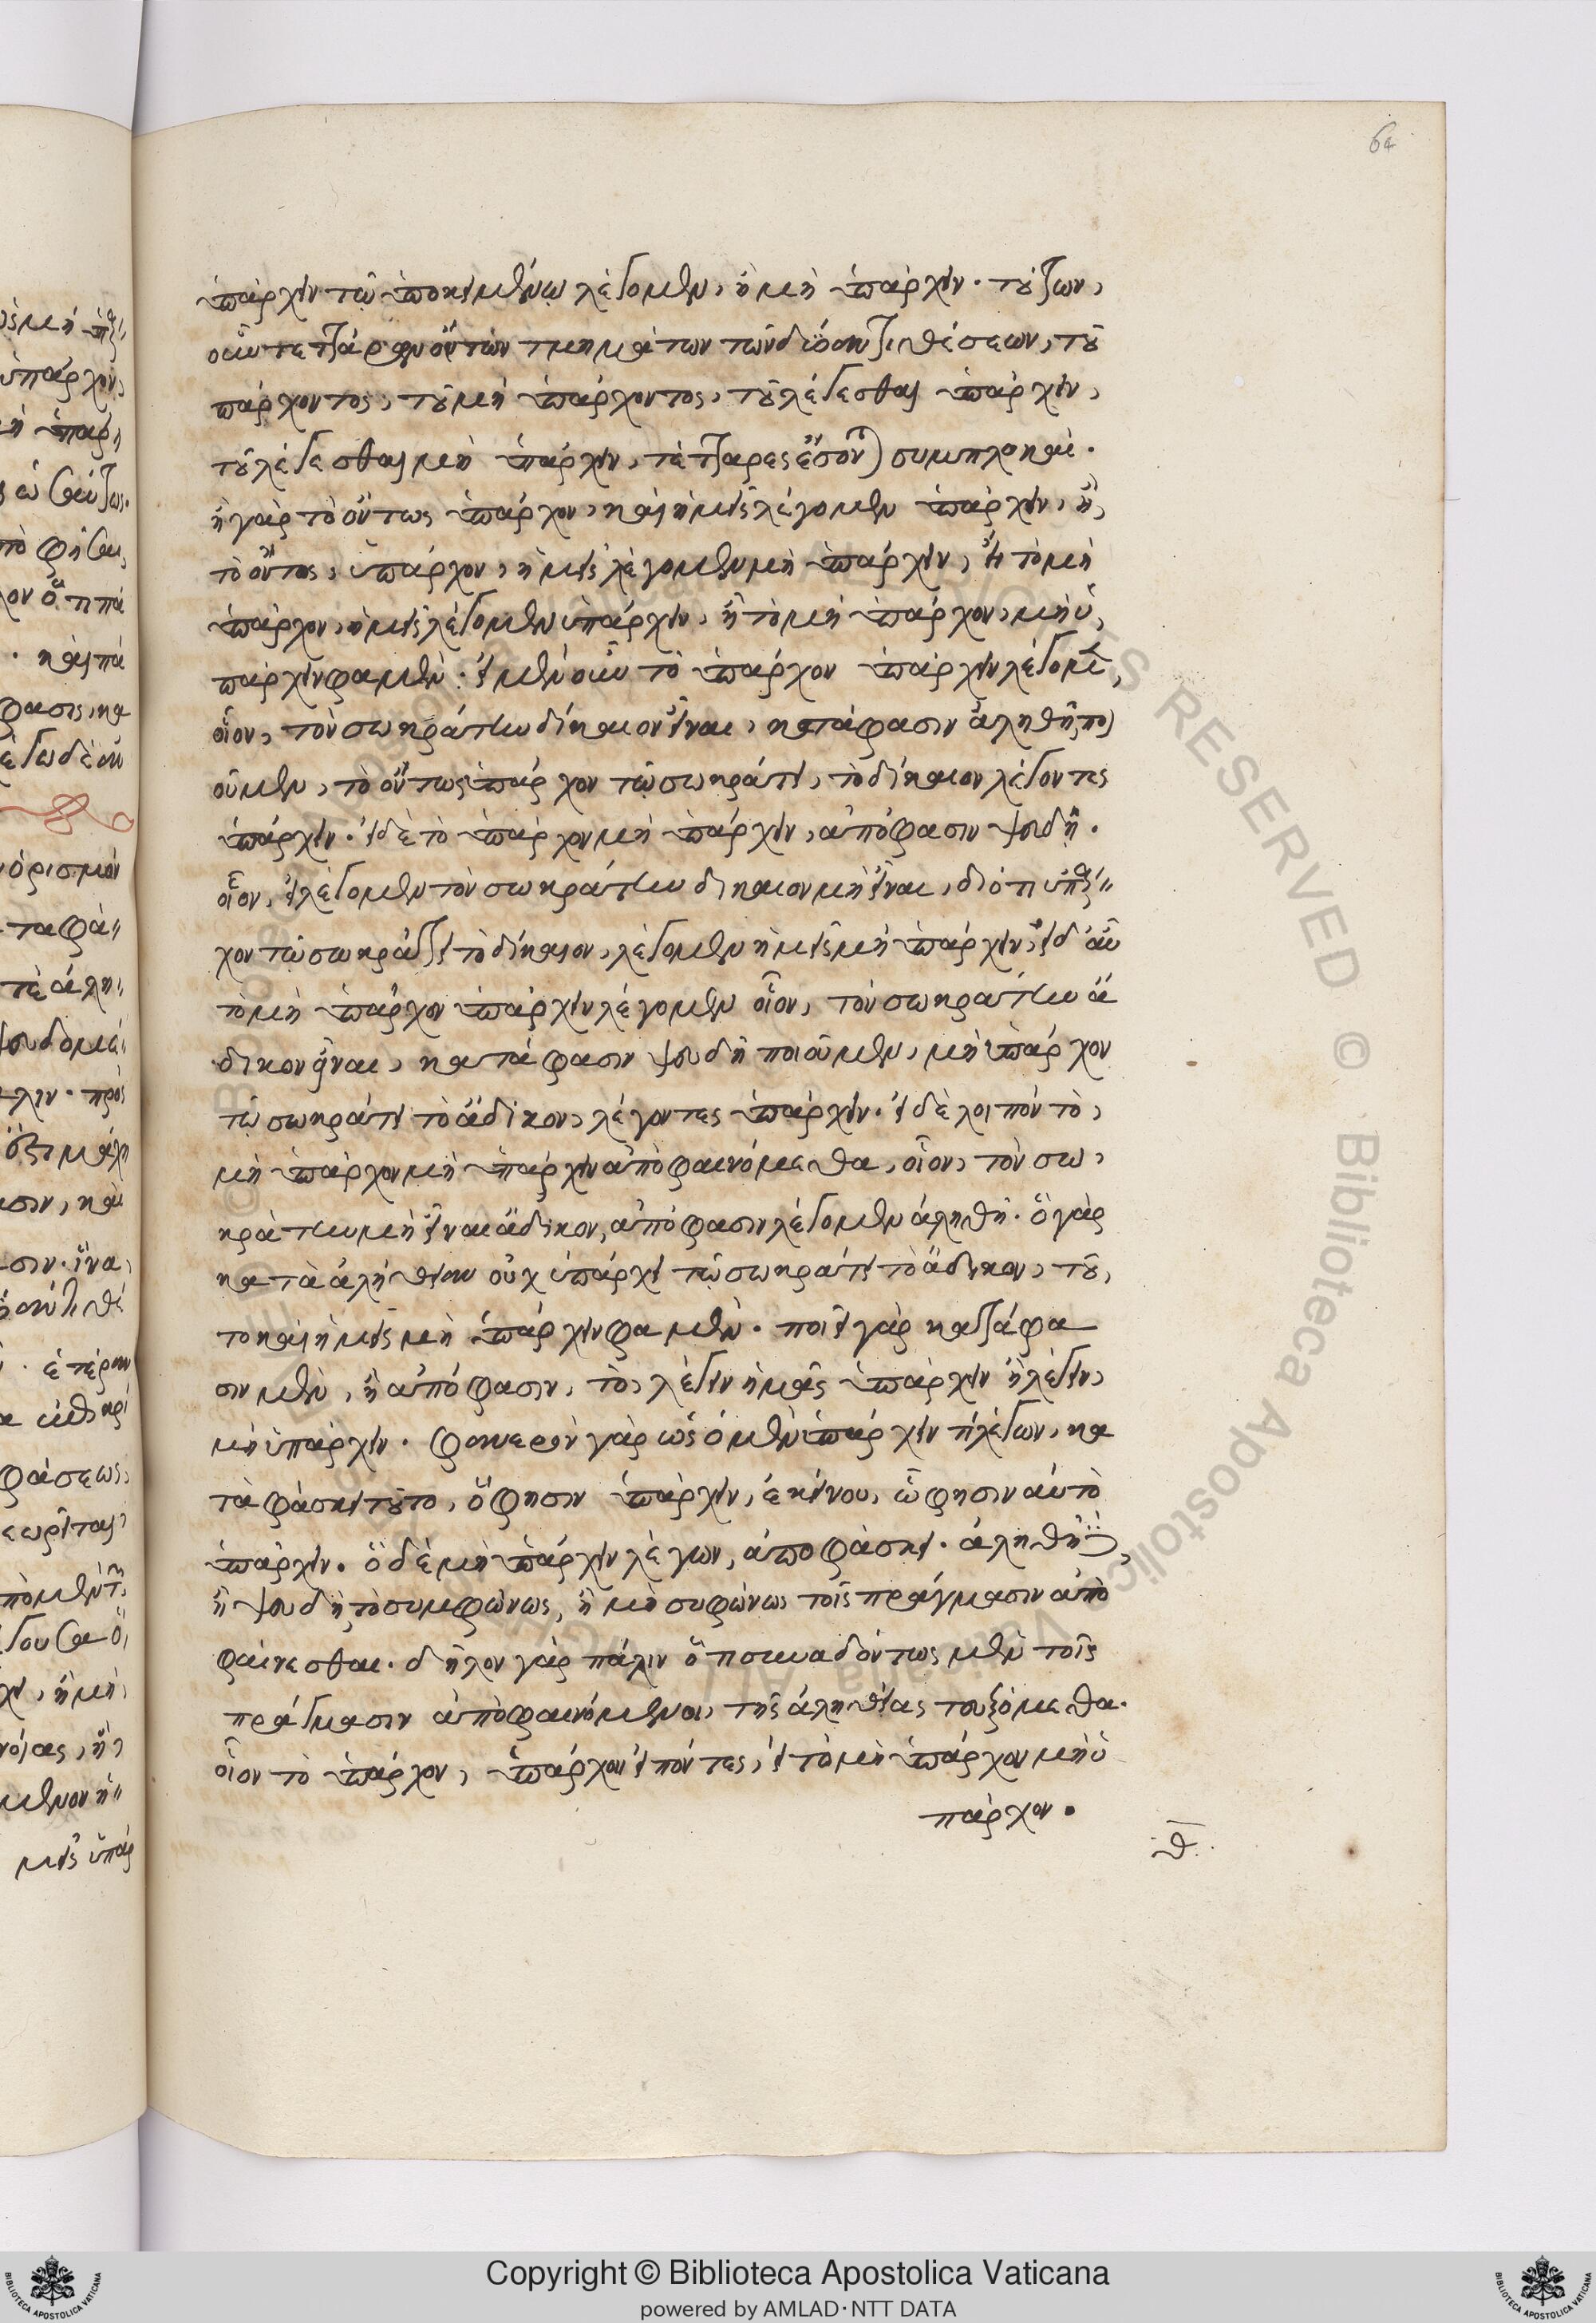 64
ὑπάρχειν τῷ ὑποκειμένῳ λέγομεν, ἢ μὴ ὑπάρχειν. τούτων,
οὖν τεττάρων ὄντων τμημάτων τῶν δύο ἀντιθέσεων, τοῦ
πάρχοντος, τοῦ μὴ ὑπάρχοντος, τοῦ λέγεσθαι ὑπάρχειν,
τοῦ λέγεσθαι μὴ ὑπάρχειν, τέτταρες ἔσονται συμπλοκαί.
ἢ γὰρ τὸ ὄντως ὑπάρχον, καὶ ἡμεῖς λέγομεν ὑπάρχειν, ἢ,
τὸ ὄντως, ὑπάρχον, ἡμεῖς λέγομεν μὴ ὑπάρχειν, ἢ τὸ μὴ
ὑπάρχον, ἡμεῖς λέγομεν ὑπάρχειν, ἢ τὸ μὴ ὑπάρχον, μὴ ὑ,
πάρχειν φαμέν. εἰ μὲν οὖν τὸ ὑπάρχον ὑπάρχειν λέγομεν,
οἷον, τὸν σωκράτην δίκαιον εἶναι, κατάφασιν ἀληθῆ ποι
οῦμεν, τὸ ὄντως ὑπάρχον τῷ σωκράτει, τὸ δίκαιον λέγοντες
ὑπάρχειν. εἰ δὲ τὸ ὑπάρχον μὴ ὑπάρχειν, ἀπόφασιν ψευδῆ.
οἷον, εἰ λέγομεν τὸν σωκράτην δίκαιον μὴ εἶναι, διότι ὑπάρ
χον τῷ σωκράτει τὸ δίκαιον, λέγομεν ἡμεῖς μὴ ὑπάρχειν, εἰ δ' αὖ
τὸ μὴ ὑπάρχον ὑπάρχειν λέγομεν οἷον, τὸν σωκράτην ἄ
δικον εἶναι, κατάφασιν ψευδῆ ποιοῦμεν, μὴ ὑπάρχον
τῷ σωκράτει τὸ ἄδικον, λέγοντες ὑπάρχειν. εἰ δὲ λοιπὸν τὸ,
μὴ ὑπάρχον μὴ ὑπάρχειν ἀποφαινόμεθα, οἷον, τὸν σω,
κράτην μὴ εἶναι ἄδικον, ἀπόφασιν λέγομεν ἀληθῆ. ὃ γὰρ
κατὰ ἀλήθειαν οὐχ ὑπάρχει τῷ σωκράτει τὸ ἄδικον, τοῦ,
το καὶ ἡμεῖς μὴ ὑπάρχειν φαμέν. ποιεῖ γὰρ κατάφα
σιν μὲν, ἢ ἀπόφασιν, τὸ, λέγειν ἡμᾶς ὑπάρχειν ἢ λέγειν,
μὴ ὑπάρχειν. φανερὸν γὰρ ὡς ὁ μὲν ὑπάρχειν τὶ λέγων, κα
ταφάσκει τοῦτο, ὅ φησιν ὑπάρχειν, ἐκείνου, ᾧ φησιν αὐτὸ
ὑπάρχειν. ὁ δὲ μὴ ὑπάρχειν λέγων, ἀποφάσκει. ἀληθῆ
ἢ ψευδῆ τὸ συμφώνως, ἢ μὴ συφώνως τοῖς πράγμασιν ἀπο
φαίνεσθαι. δῆλον γὰρ πάλιν ὅτι συναδόντως μὲν τοῖς
πράγμασιν ἀποφαινόμενοι, τῆς ἀληθείας τευξόμεθα.
οἷον τὸ ὑπάρχον, ὑπάρχον εἰπόντες, εἰ τὸ μὴ ὑπάρχον μὴ ὑ
πάρχον.
θ
Copyright © Biblioteca Apostolica Vaticana
powered by AMLAD·NTT DATA